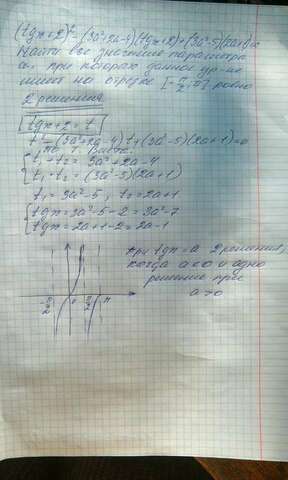 (tgx+2)² - (3a²+2a-4)(tgx+2) + (3a²-5)(2a+1)=0
Найти все значения параметра
a, при которых данное ур-ие
имеет на отрезке [-π/2; π] ровно
2 решения
tgx+2 = t
t² - (3a²+2a-4)t + (3a²-5)(2a+1)=0
по т. Виета:
t₁ + t₂ = 3a² + 2a - 4
t₁ · t₂ = (3a²-5)(2a+1)
t₁ = 3a² - 5, t₂ = 2a + 1
tgx = 3a² - 5 - 2 = 3a² - 7
tgx = 2a + 1 - 2 = 2a - 1
при tgx = a 2 решения,
когда a < 0 и одно
решение при
a > 0
-π/2 0 π/2 π